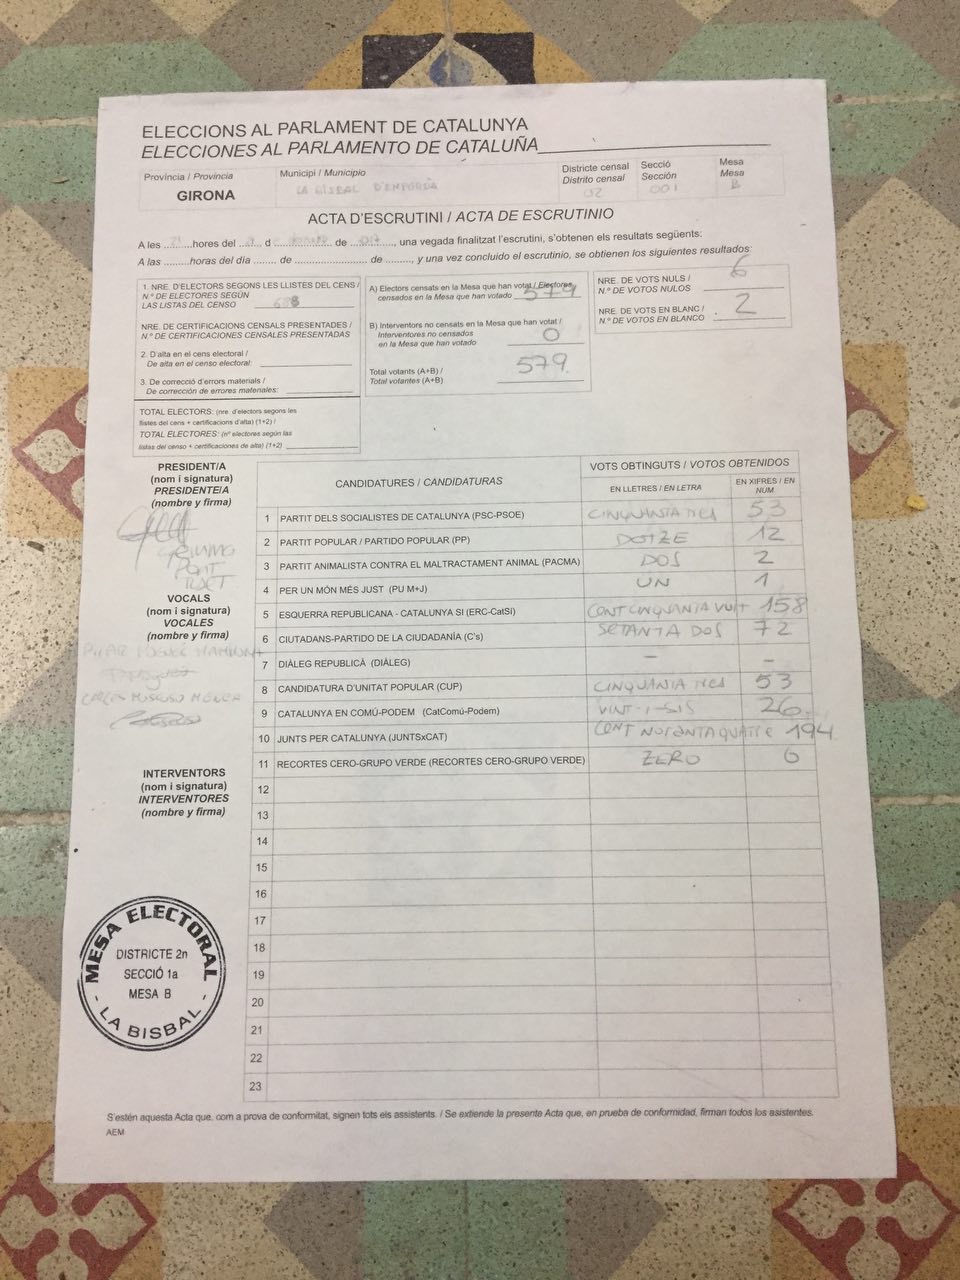 ELECCIONS AL PARLAMENT DE CATALUNYA
ELECCIONES AL PARLAMENTO DE CATALUÑA
Província / Provincia
GIRONA
Municipi / Municipio
LA BISBAL D'EMPORDÀ
Districte censal
Distrito censal
02
Secció
Sección
001
Mesa
Mesa
B
ACTA D'ESCRUTINI / ACTA DE ESCRUTINIO
A les ........hores del ...... d ............ de ........, una vegada finalitzat l'escrutini, s'obtenen els resultats següents:
A las .........horas del día ....... de ....................... de ........., y una vez concluido el escrutinio, se obtienen los siguientes resultados:
1. NRE. D'ELECTORS SEGONS LES LLISTES DEL CENS /
N.º DE ELECTORES SEGÚN
LAS LISTAS DEL CENSO
NRE. DE CERTIFICACIONS CENSALS PRESENTADES /
N.º DE CERTIFICACIONES CENSALES PRESENTADAS
2. D'alta en el cens electoral /
De alta en el censo electoral:
3. De correcció d'errors materials /
De corrección de errores materiales:
TOTAL ELECTORS: (nre. d'electors segons les
llistes del cens + certificacions d'alta) (1+2) /
TOTAL ELECTORES: (nº electores según las
listas del censo + certificaciones de alta) (1+2)
A) Electors censats en la Mesa que han votat / Electores
censados en la Mesa que han votado 579
B) Interventors no censats en la Mesa que han votat /
Interventores no censados
en la Mesa que han votado 0
Total votants (A+B) /
Total votantes (A+B) 579
NRE. DE VOTS NULS /
N.º DE VOTOS NULOS 6
NRE. DE VOTS EN BLANC /
N.º DE VOTOS EN BLANCO 2
PRESIDENT/A
(nom i signatura)
PRESIDENTE/A
(nombre y firma)
VOCALS
(nom i signatura)
VOCALES
(nombre y firma)
INTERVENTORS
(nom i signatura)
INTERVENTORES
(nombre y firma)
CANDIDATURES / CANDIDATURAS
VOTS OBTINGUTS / VOTOS OBTENIDOS
EN LLETRES / EN LETRA
EN XIFRES / EN
NUM
1 PARTIT DELS SOCIALISTES DE CATALUNYA (PSC-PSOE) CINQUANTA TRES 53
2 PARTIT POPULAR / PARTIDO POPULAR (PP) DOTZE 12
3 PARTIT ANIMALISTA CONTRA EL MALTRACTAMENT ANIMAL (PACMA) DOS 2
4 PER UN MÓN MÉS JUST (PU M+J) UN 1
5 ESQUERRA REPUBLICANA - CATALUNYA SI (ERC-CatSÍ) CENT CINQUANTA VUIT 158
6 CIUTADANS-PARTIDO DE LA CIUDADANÍA (C's) SETANTA DOS 72
7 DIÀLEG REPUBLICÀ (DIÀLEG) - -
8 CANDIDATURA D'UNITAT POPULAR (CUP) CINQUANTA TRES 53
9 CATALUNYA EN COMÚ-PODEM (CatComú-Podem) VINT-I-SIS 26
10 JUNTS PER CATALUNYA (JUNTSxCAT) CENT NORANTA QUATRE 194
11 RECORTES CERO-GRUPO VERDE (RECORTES CERO-GRUPO VERDE) ZERO 0
12
13
14
15
16
17
18
19
20
21
22
23
MESA ELECTORAL
DISTRICTE 2n
SECCIÓ 1a
MESA B
- LA BISBAL -
S'estén aquesta Acta que, com a prova de conformitat, signen tots els assistents. / Se extiende la presente Acta que, en prueba de conformidad, firman todos los asistentes.
AEM